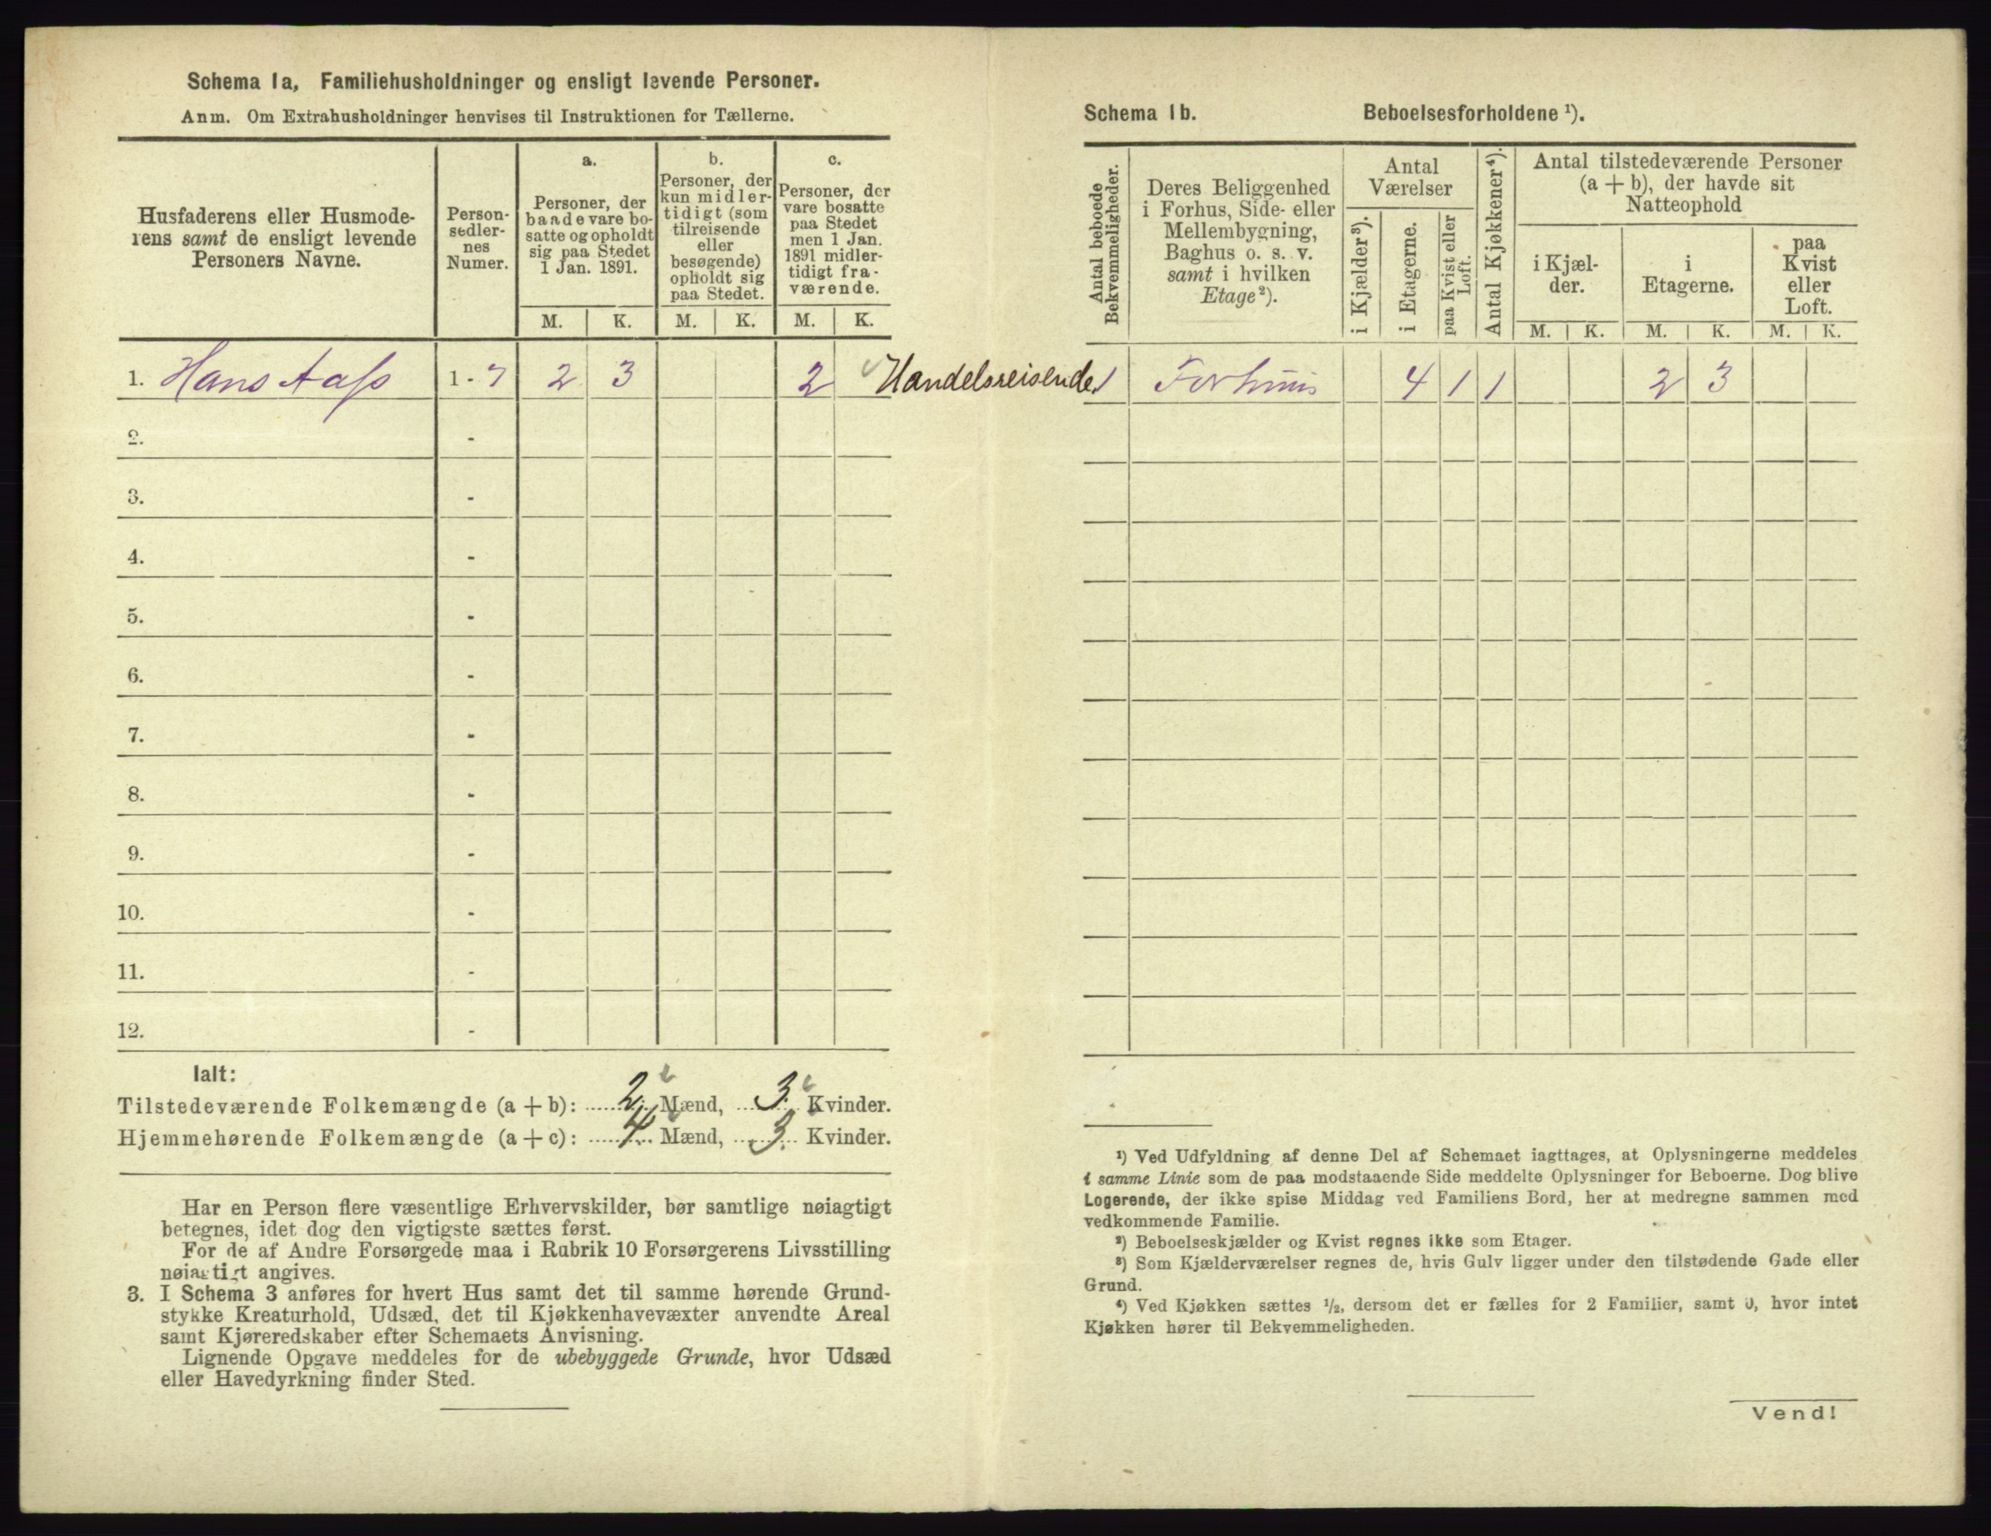 Schema 1a, Familiehusholdninger og ensligt levende Personer.
Anm. Om Extrahusholdninger henvises til Instruktionen for Tællerne.
Husfaderens eller Husmode-
rens samt de ensligt levende
Personers Navne.
Person-
sedler-
nes
Numer.
a.
Personer, der
baade vare bo-
satte og opholdt
sig paa Stedet
1 Jan. 1891.
b.
Personer, der
kun midler-
tidigt (som
tilreisende
eller
besøgende)
opholdt sig
paa Stedet.
c.
Personer, der
vare bosatte
paa Stedet
men 1 Jan.
1891 midler-
tidigt fra-
værende.
M. K. M. K. M. K.
1. Hans Aass 1 - 7 2 3 2 Handelsreisende
2. -
3. -
4. -
5. -
6. -
7. -
8. -
9. -
10. -
11. -
12. -
Ialt:
Tilstedeværende Folkemængde (a + b): 2 Mænd, 3 Kvinder.
Hjemmehørende Folkemængde (a + c): 4 Mænd, 3 Kvinder.
Har en Person flere væsentlige Erhvervskilder, bør samtlige nøiagtigt
betegnes, idet dog den vigtigste sættes først.
For de af Andre Forsørgede maa i Rubrik 10 Forsørgerens Livsstilling
nøiagtigt angives.
3. I Schema 3 anføres for hvert Hus samt det til samme hørende Grund-
stykke Kreaturhold, Udsæd, det til Kjøkkenhavevæxter anvendte Areal
samt Kjøreredskaber efter Schemaets Anvisning.
Lignende Opgave meddeles for de ubebyggede Grunde, hvor Udsæd
eller Havedyrkning finder Sted.
Schema 1b. Beboelsesforholdene ¹).
Antal beboede
Bekvemmeligheder.
Deres Beliggenhed
i Forhus, Side- eller
Mellembygning,
Baghus o. s. v.
samt i hvilken
Etage²).
Antal
Værelser
i Kjælder³).
i Etagerne.
paa Kvist eller
Loft.
Antal Kjøkkener⁴).
Antal tilstedeværende Personer
(a + b), der havde sit
Natteophold
i Kjæl-
der.
i
Etagerne.
paa
Kvist
eller
Loft.
M. K. M. K. M. K.
1 Forhuus 4 1 1 2 3
¹) Ved Udfyldning af denne Del af Schemaet iagttages, at Oplysningerne meddeles
i samme Linie som de paa modstaaende Side meddelte Oplysninger for Beboerne. Dog blive
Logerende, der ikke spise Middag ved Familiens Bord, her at medregne sammen med
vedkommende Familie.
²) Beboelseskjælder og Kvist regnes ikke som Etager.
³) Som Kjælderværelser regnes de, hvis Gulv ligger under den tilstødende Gade eller
Grund.
⁴) Ved Kjøkken sættes ½, dersom det er fælles for 2 Familier, samt 0, hvor intet
Kjøkken hører til Bekvemmeligheden.
Vend!